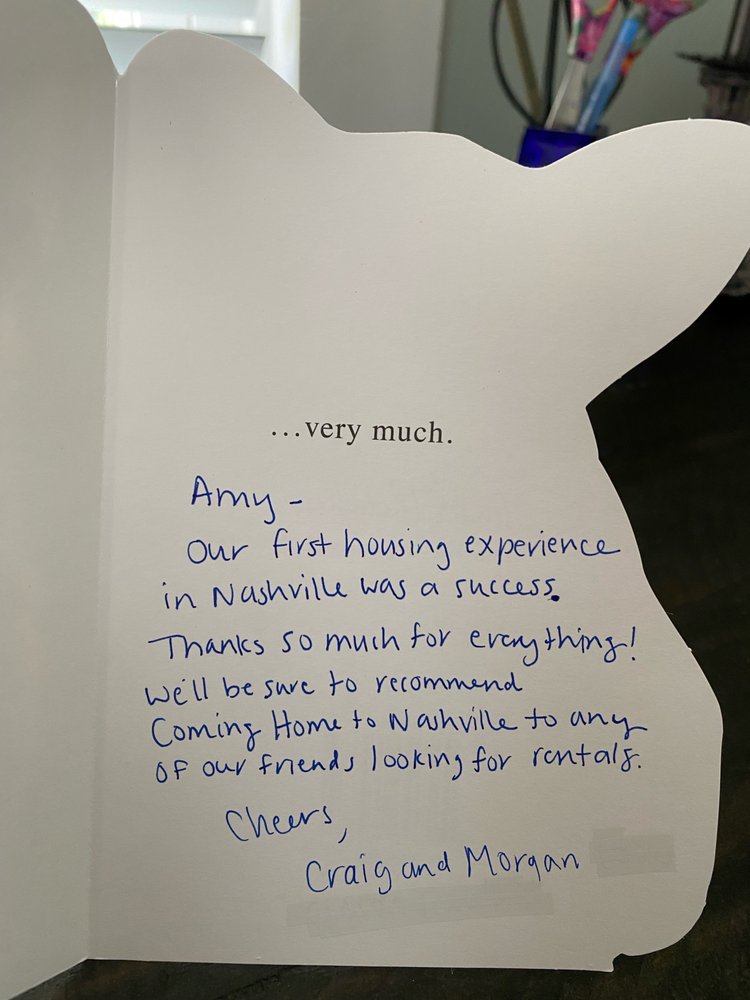 ...very much.
Amy -
Our first housing experience
in Nashville was a success.
Thanks so much for everything!
We'll be sure to recommend
Coming Home to Nashville to any
of our friends looking for rentals.
Cheers,
Craig and Morgan